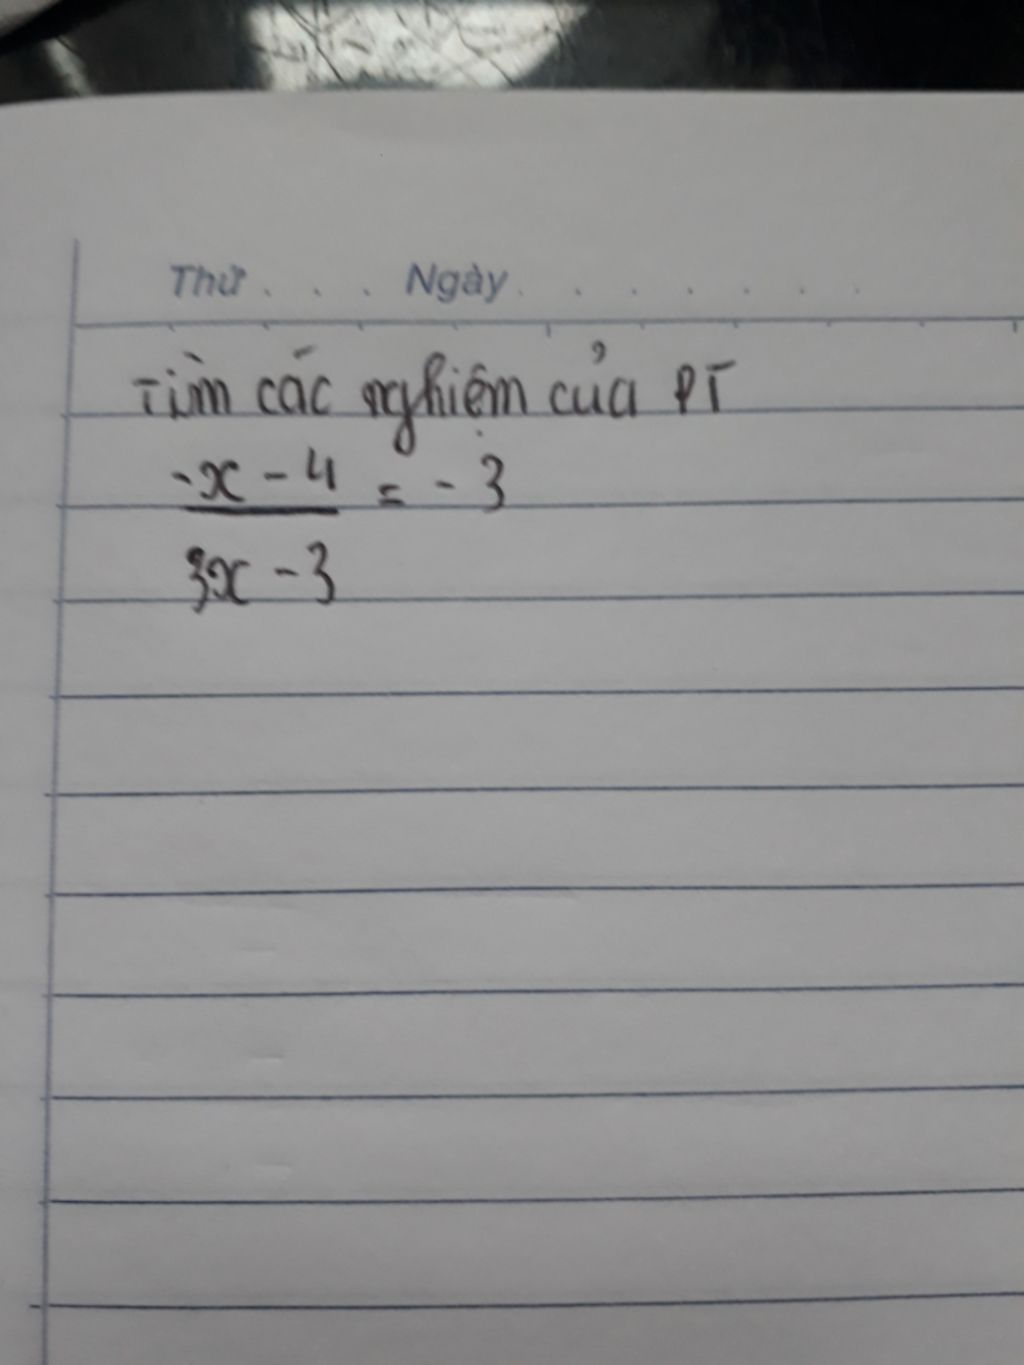 Thứ . . . Ngày . . . . . . . .
Tìm các nghiệm của PT
-x - 4 = - 3
3x - 3